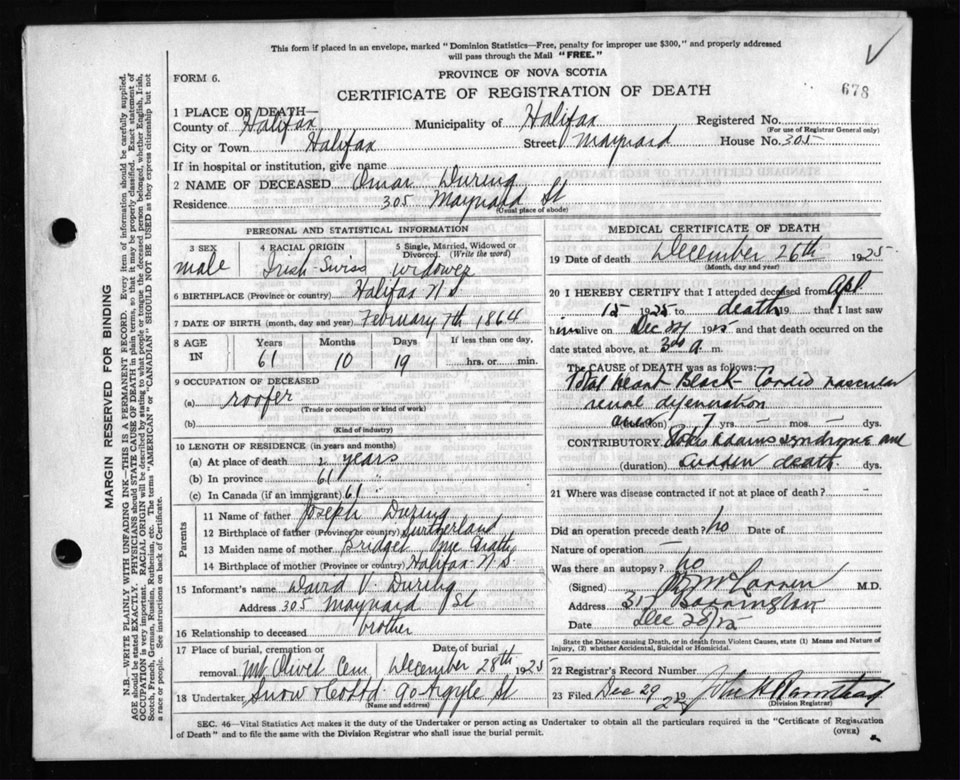 This form if placed in an envelope, marked "Dominion Statistics—Free, penalty for improper use $300," and properly addressed
will pass through the Mail "FREE."
FORM 6.
PROVINCE OF NOVA SCOTIA
CERTIFICATE OF REGISTRATION OF DEATH
678
1 PLACE OF DEATH—
County of Halifax Municipality of Halifax Registered No.
(For use of Registrar General only)
City or Town Halifax Street Maynard House No. 305
If in hospital or institution, give name
2 NAME OF DECEASED Omar During
Residence 305 Maynard St
(Usual place of abode)
PERSONAL AND STATISTICAL INFORMATION
3 SEX 4 RACIAL ORIGIN 5 Single, Married, Widowed or Divorced. (Write the word)
male Irish-Swiss widower
6 BIRTHPLACE (Province or country) Halifax N S
7 DATE OF BIRTH (month, day and year) February 7th 1864
8 AGE IN Years Months Days If less than one day,
61 10 19 hrs. or min.
9 OCCUPATION OF DECEASED
(a) roofer
(Trade or occupation or kind of work)
(b)
(Kind of industry)
10 LENGTH OF RESIDENCE (in years and months)
(a) At place of death 2 years
(b) In province 61 "
(c) In Canada (if an immigrant) 61 "
Parents
11 Name of father Joseph During
12 Birthplace of father (Province or country) Switherland
13 Maiden name of mother Bridget Mc Grath
14 Birthplace of mother (Province or country) Halifax N S
15 Informant's name David V. During
Address 305 Maynard St
16 Relationship to deceased brother
17 Place of burial, cremation or removal Mt Olivet Cem Date of burial December 28th 1925
18 Undertaker Snow & Co Ltd 90 Argyle St
(Name and address)
MEDICAL CERTIFICATE OF DEATH
19 Date of death December 26th 1925
(Month, day and year)
20 I HEREBY CERTIFY that I attended deceased from Apl
15 1925 to death 19 that I last saw
him alive on Dec 1925 and that death occurred on the
date stated above, at 3 00 a m.
The CAUSE OF DEATH was as follows:
Total heart Block— Cardio vascular
renal
(duration) 7 yrs. mos. dys.
CONTRIBUTORY Stokes Adams syndrome and
(duration) sudden death dys.
21 Where was disease contracted if not at place of death? —
Did an operation precede death? no Date of
Nature of operation —
Was there an autopsy? no
(Signed) M.D.
Address 317 Barrington
Date Dec 28/25
State the Disease causing Death, or in death from Violent Causes, state (1) Means and Nature of
Injury, (2) whether Accidental, Suicidal or Homicidal.
22 Registrar's Record Number
23 Filed Dec 29 1925 John H
(Division Registrar)
SEC. 46—Vital Statistics Act makes it the duty of the Undertaker or person acting as Undertaker to obtain all the particulars required in the "Certificate of Registration
of Death" and to file the same with the Division Registrar who shall issue the burial permit.
(OVER)
MARGIN RESERVED FOR BINDING
N.B.—WRITE PLAINLY WITH UNFADING INK—THIS IS A PERMANENT RECORD. Every item of information should be carefully supplied.
AGE should be stated EXACTLY. PHYSICIANS should STATE CAUSE OF DEATH in plain terms, so that it may be properly classified. Exact statement of
OCCUPATION is very important. RACIAL ORIGIN will be described by stating to what people or tongue the deceased person belonged, whether English, Irish,
Scotch, French, German, Russian, Ruthenian, etc. The terms "AMERICAN" or "CANADIAN" SHOULD NOT BE USED as they express citizenship but not
a race or people. See instructions on back of Certificate.